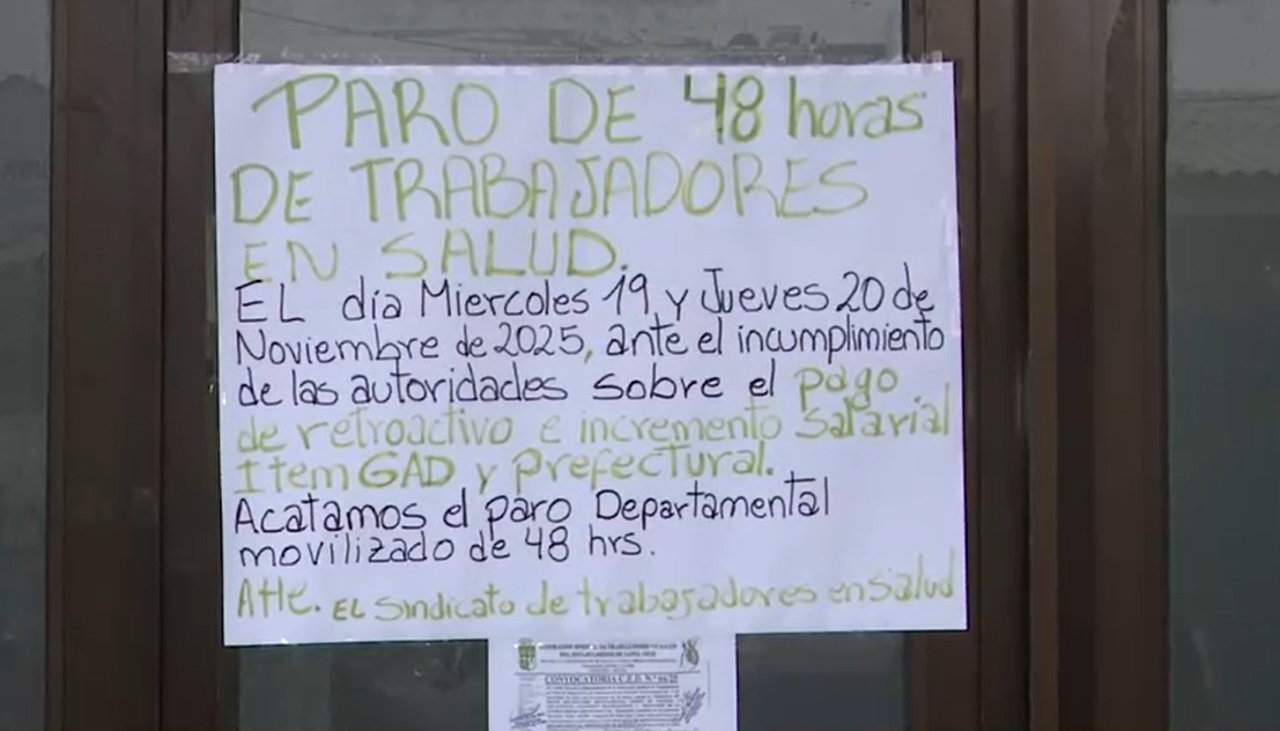 PARO DE 48 horas
DE TRABAJADORES
EN SALUD.
EL día Miercoles 19 y Jueves 20 de
Noviembre de 2025, ante el incumplimiento
de las autoridades sobre el pago
de retroactivo e incremento Salarial
Item GAD y prefectural.
Acatamos el paro Departamental
movilizado de 48 hrs.
Atte. EL Sindicato de trabajadores en salud
CONVOCATORIA C.E.D. N.º